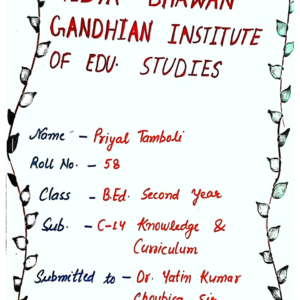 BHAWAN
GANDHIAN INSTITUTE
OF EDU. STUDIES
Name - Priyal Tamboli
Roll No. - 58
Class - B.Ed. Second Year
Sub. - C-14 Knowledge &
Curriculum
Submitted to - Dr. Yatin Kumar